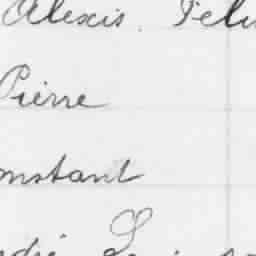 Alexis. Feli
Pierre
onstant